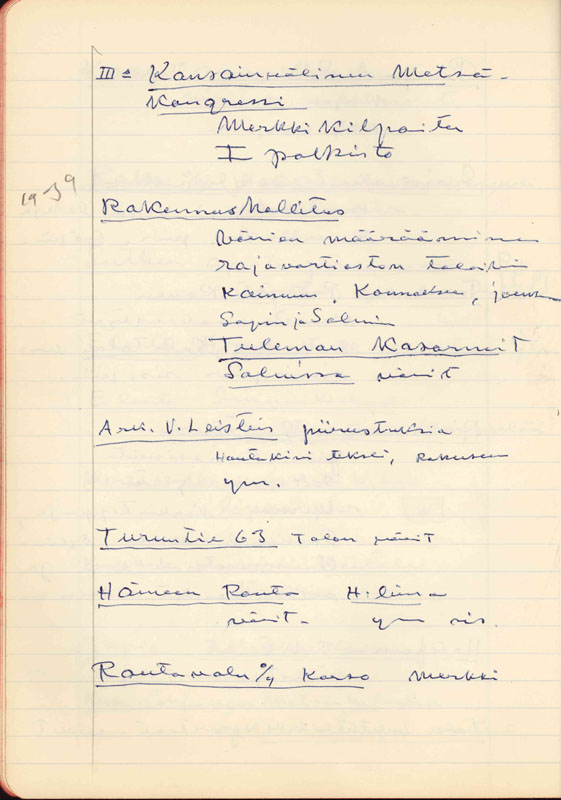 III s Kansainvälinen Metsä-
Kongressi
Merkki Kilpailu
I palkinto
1939
Rakennushallitus
Värien määrääminen
rajavartioston taloihin
Kainuun, Kannaksen, Joensuu
Sapin ja Salmin
Tuleman Kasarmit
Salmissa värit
Ark. V. Leistén piirustuksia
Hautakivi teksti,
ym.
Turuntie 63 Talon värit
Hämeen Rauta H:linna
värit. ym
Rautavalu O/Y Karso Merkki